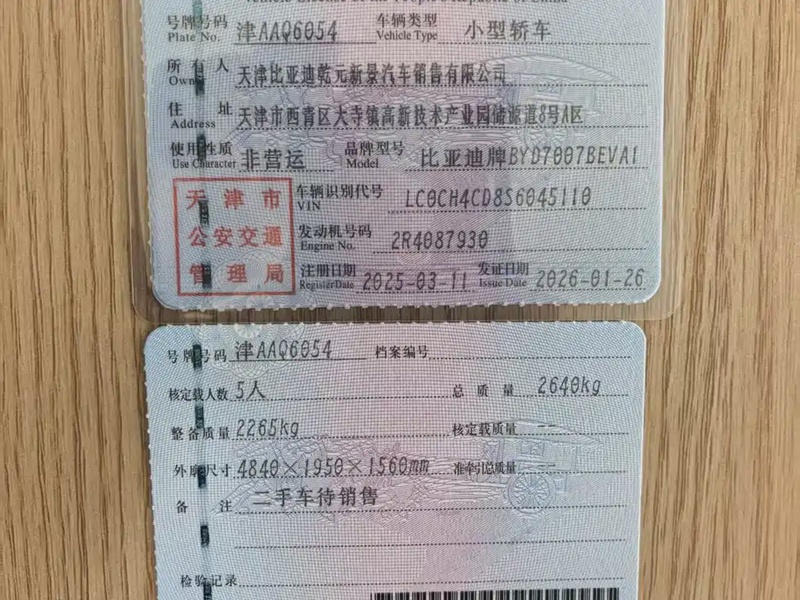 Vehicle License of the People's Republic of China
号牌号码 津AAQ6054 车辆类型 小型轿车
Plate No. Vehicle Type
所有人 天津比亚迪乾元新景汽车销售有限公司
Owner
住址 天津市西青区大寺镇高新技术产业园储源道8号A区
Address
使用性质 非营运 品牌型号 比亚迪牌BYD7007BEVA1
Use Character Model
天津市 车辆识别代号 LC0CH4CD8S6045110
VIN
公安交通 发动机号码 2R4087930
Engine No.
管理局 注册日期 2025-03-11 发证日期 2026-01-26
Register Date Issue Date
号牌号码 津AAQ6054 档案编号
核定载人数 5人 总质量 2640kg
整备质量 2265kg 核定载质量 --
外廓尺寸 4840×1950×1560mm 准牵引总质量 --
备注 二手车待销售
检验记录